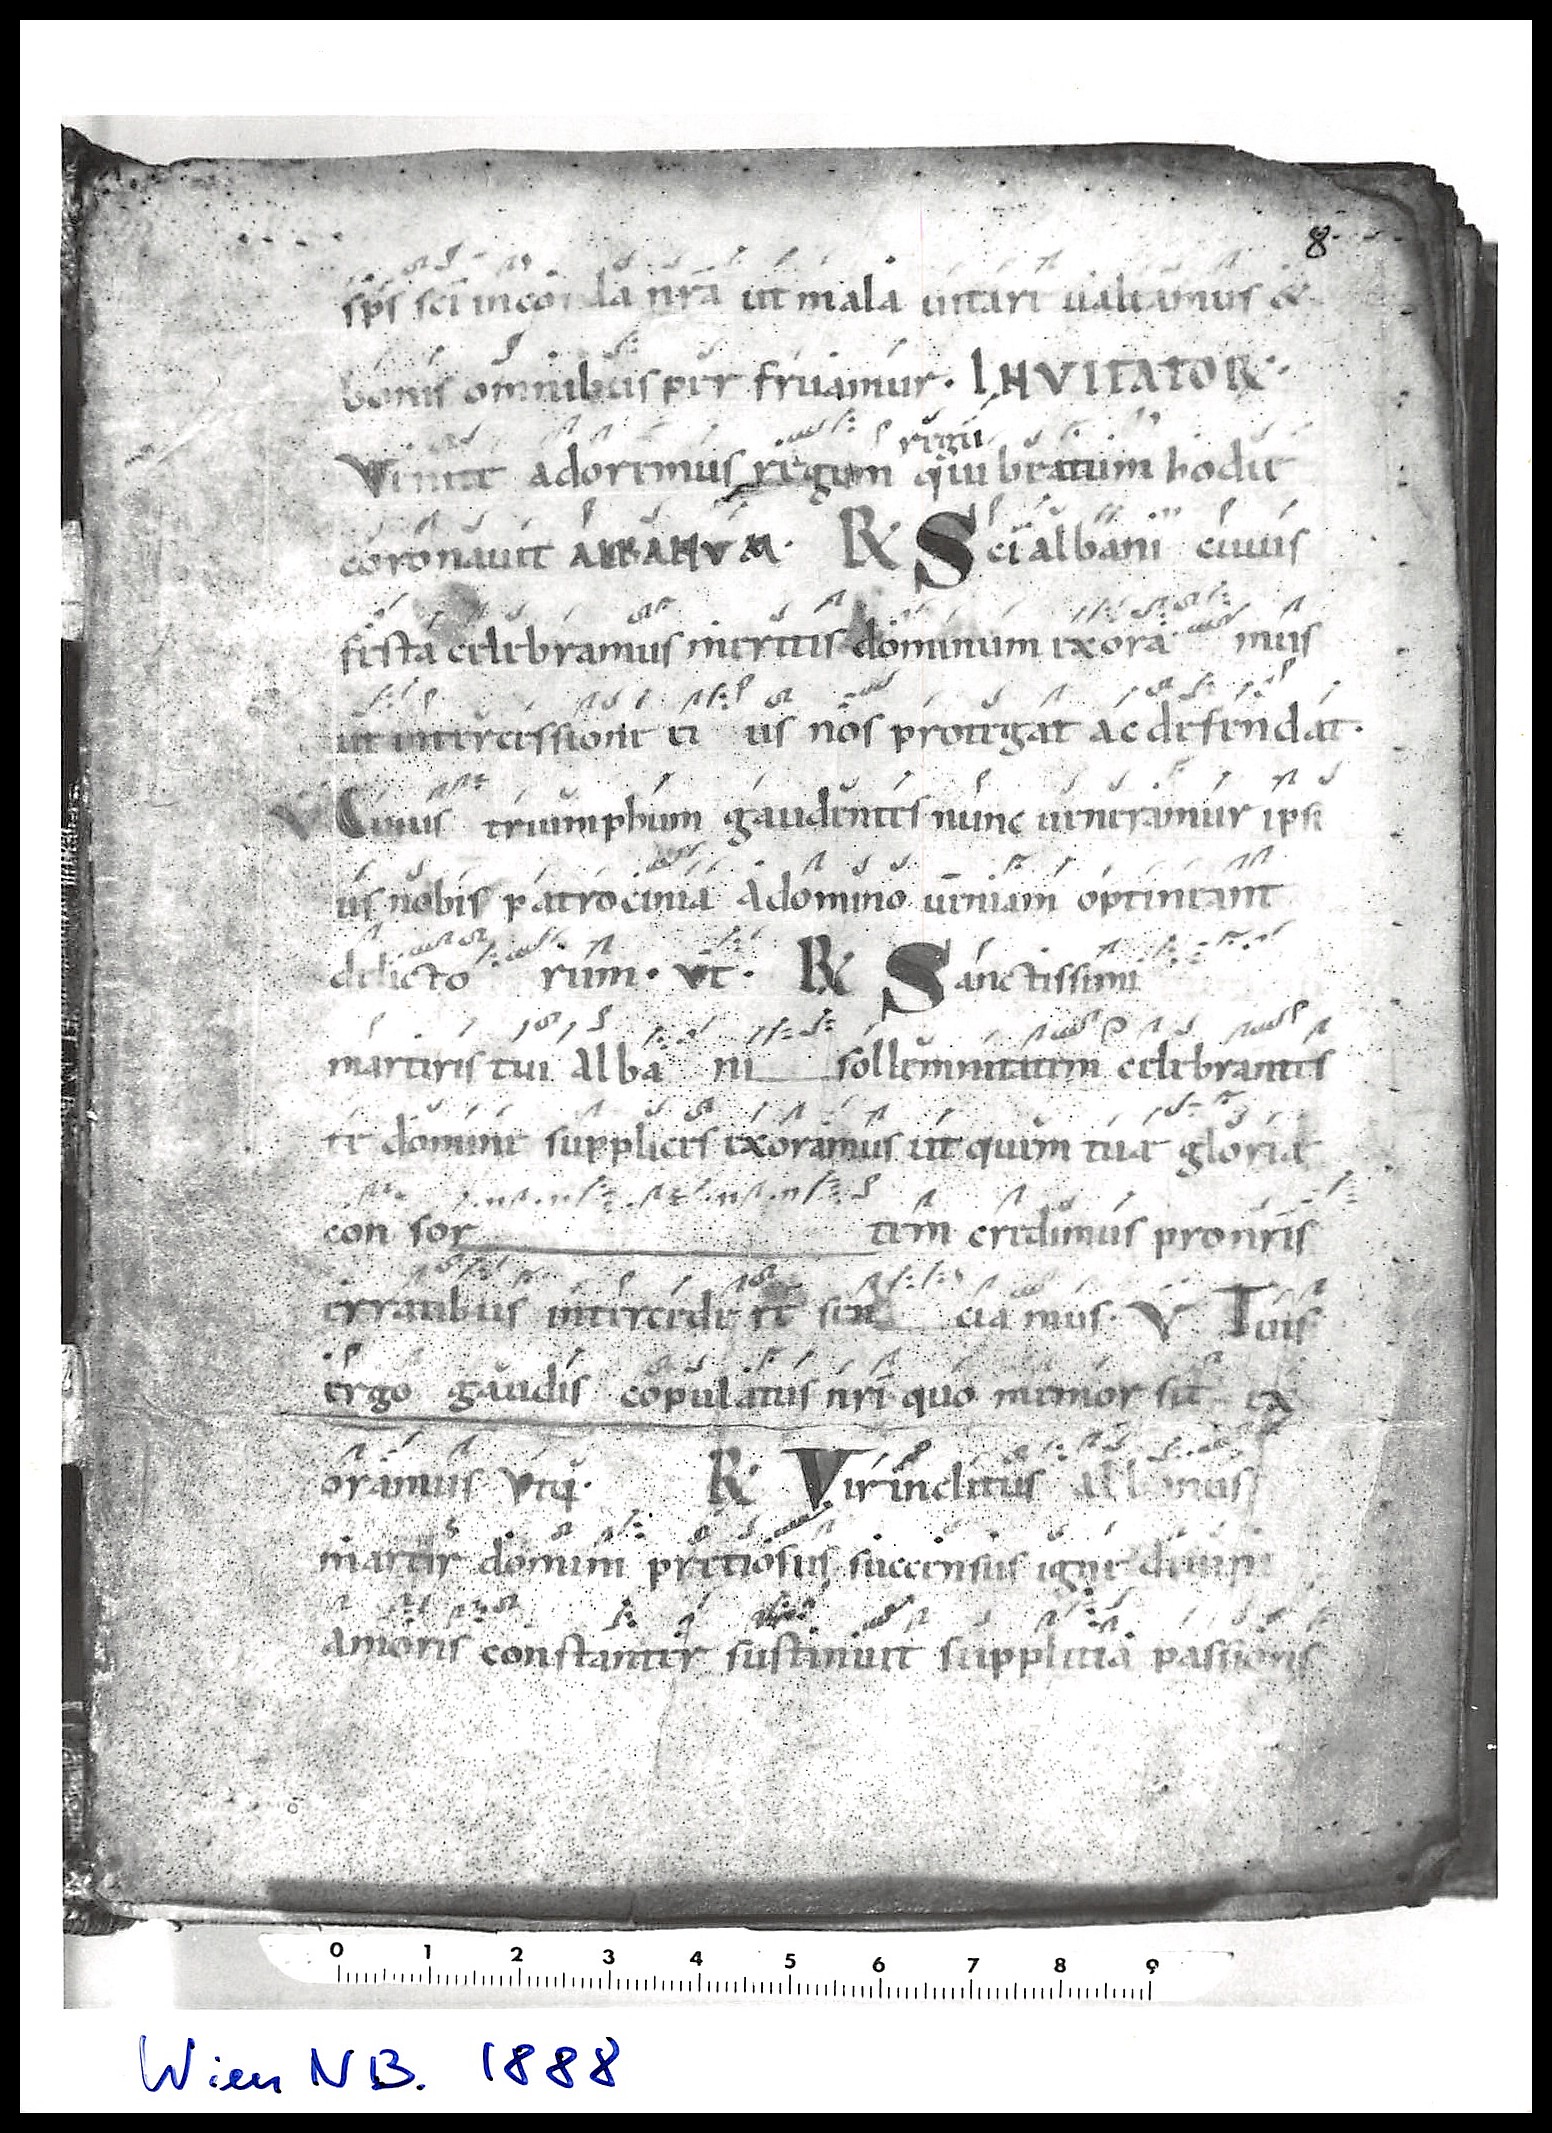 8
sps sci in corda nra ut mala uitare ualeamus &
bonis omnibus per fruamur. INVITATOR.
regū
Venite adoremus regem qui beatum hodie
coronauit ALBANVM. R Sci albani cuius
festa celebramus meritis dominum exora mus
ut intercessione ei us nos protegat ac defendat.
V Cuius triumphum gaudentes nunc ueneramur ipsi
us nobis patrocinia a domino ueniam optineant
delicto rum. Vt. R Sanctissimi
martiris tui alba ni sollemnitatem celebrantes
te domine supplices exoramus ut quem tuae gloriae
con sor tem credimus pro nris
erratibus intercedere sen cia mus. V Tuis
ergo gaudis copulatus nri quo memor sit ex
oramus Vtq. R Vir inclitus albanus
martir domini pretiosus succensus igne diuini
amoris constanter sustinuit supplicia passionis
0 1 2 3 4 5 6 7 8 9
Wien NB. 1888